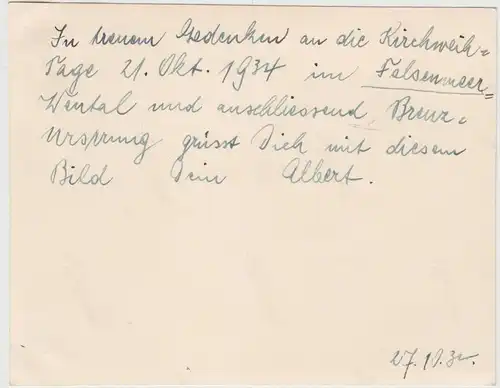 In treuem Gedenken an die Kirchweih=
Tage 21. Okt. 1934 im Felsenmeer=
Wental und anschliessend, Brenz=
Ursprung grüsst Dich mit diesem
Bild Dein Albert.
27.10.34.